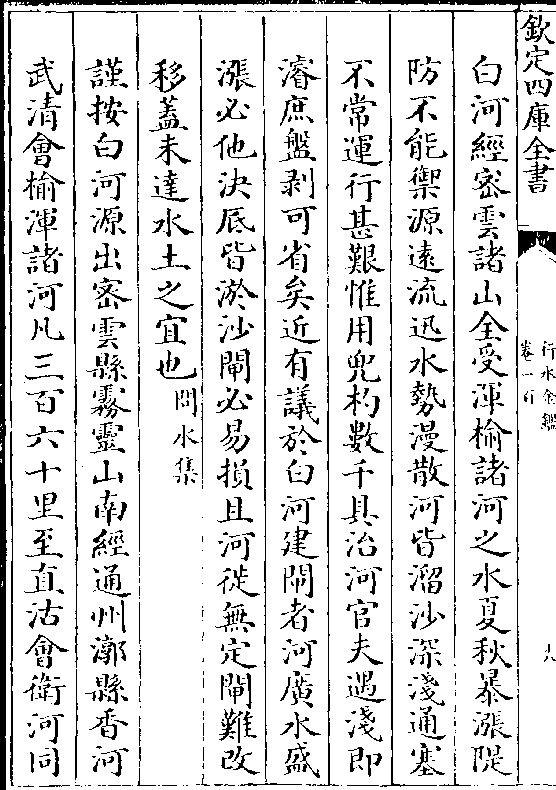 欽定四庫全書
行水金鑑
卷一百
十八
白河經密雲諸山全受渾榆諸河之水夏秋暴漲隄
防不能禦源遠流迅水勢漫散河皆溜沙深淺通塞
不常運行甚艱惟用兜杓數千具治河官夫遇淺即
濬庶盤剥可省矣近有議於白河建閘者河廣水盛
漲必他決底皆淤沙閘必易損且河徙無定閘難改
移蓋未達水土之宜也問水集
謹按白河源出密雲縣霧靈山南經通州漷縣香河
武清會榆渾諸河凡三百六十里至直沽會衛河同